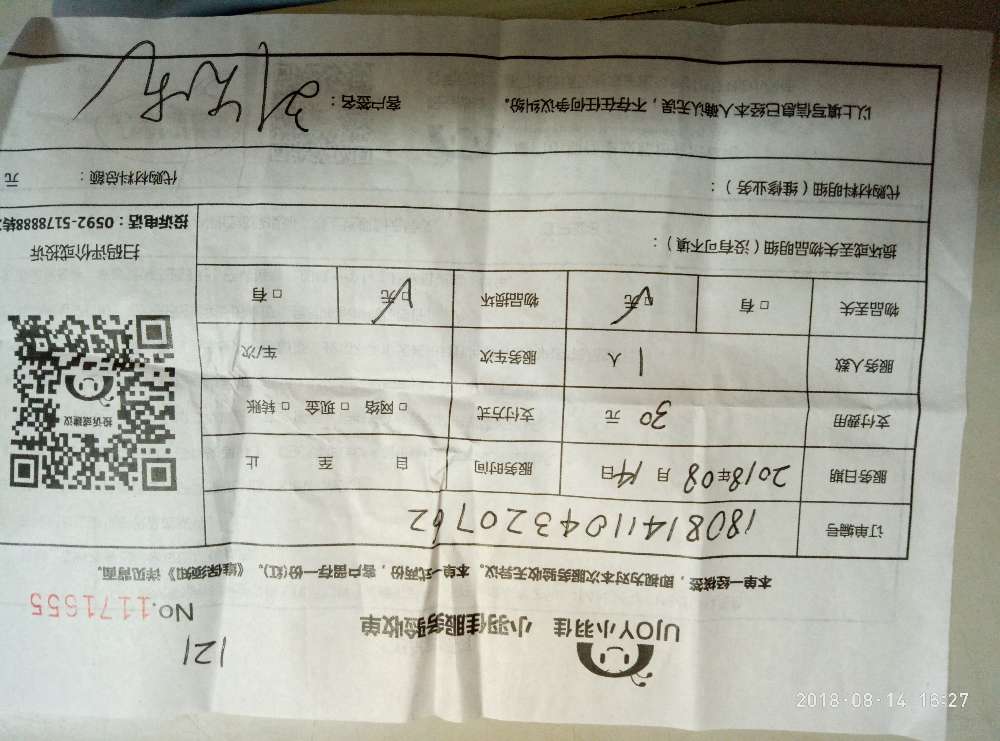 121
UJOY小羽佳 小羽佳服务验收单
No.1171655
本单一经核签，即视为对本次服务验收无异议。本单一式两份，客户留存一份(红)。《维保须知》详见背面。
订单编号 180814110432070762
服务日期 2018年08月14日 服务时间 自 至 止
支付费用 30 元 支付方式 □网络 □现金 □转账
服务人数 1 人 服务车次 车/次
物品丢失 □有 □无 物品损坏 □无 □有
投诉或建议
扫码评价或投诉
投诉电话：0592-5178888转
损坏或丢失物品明细（没有可不填）：
代购材料明细（维修业务）： 代购材料总额： 元
以上填写信息已经本人确认无误，不存在任何争议纠纷。 客户签名：
2018-08-14 16:27